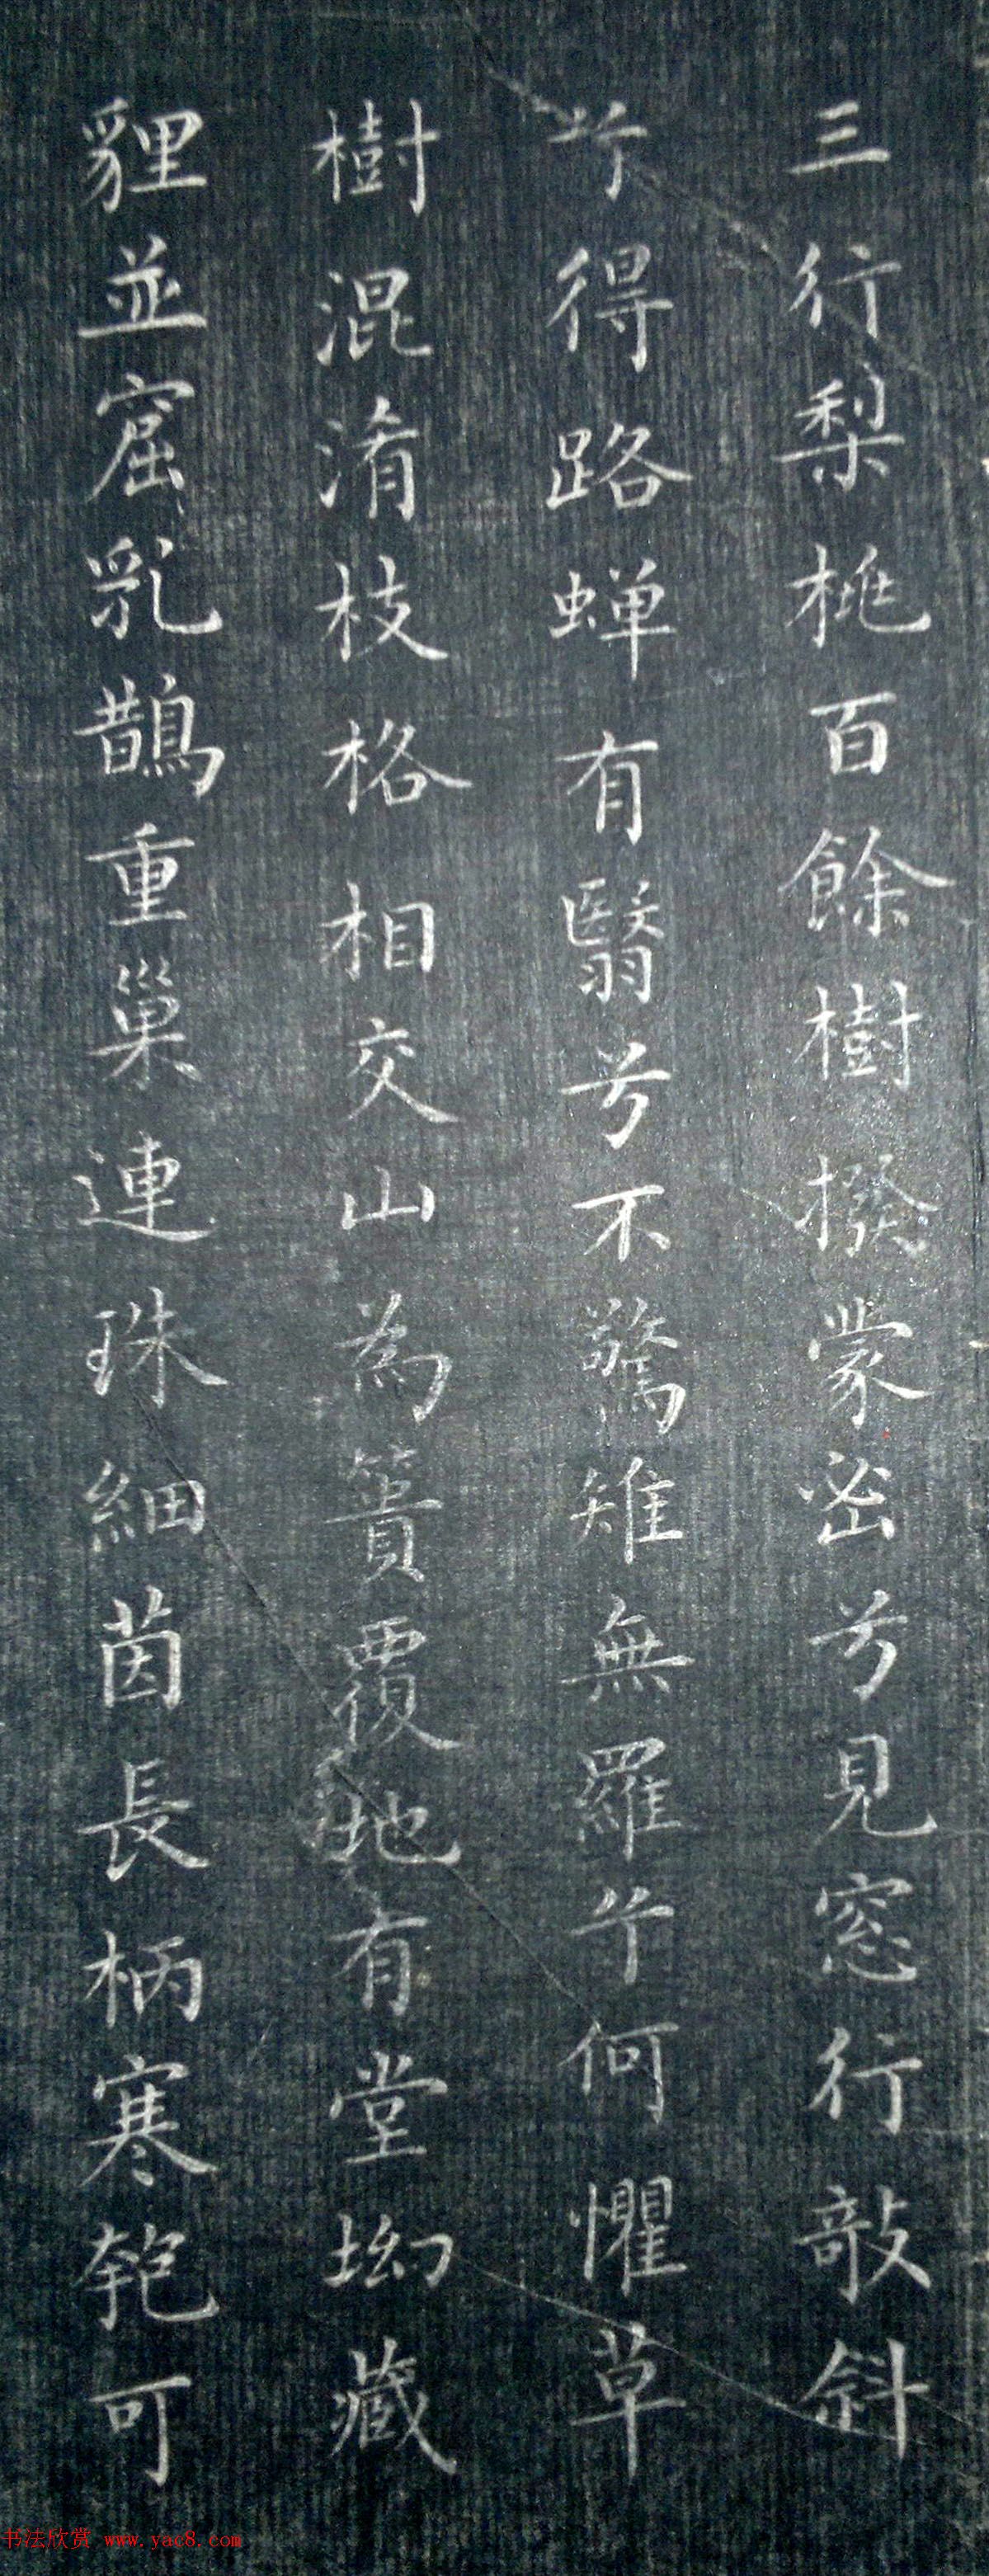 三行梨桃百餘樹撥蒙密兮見窓行敧斜
兮得路蟬有翳兮不驚雉無羅兮何懼草
樹混淆枝格相交山為簣覆地有堂坳藏
貍並窟乳鵲重巢連珠細茵長柄寒匏可
书法欣赏 www.yac8.com